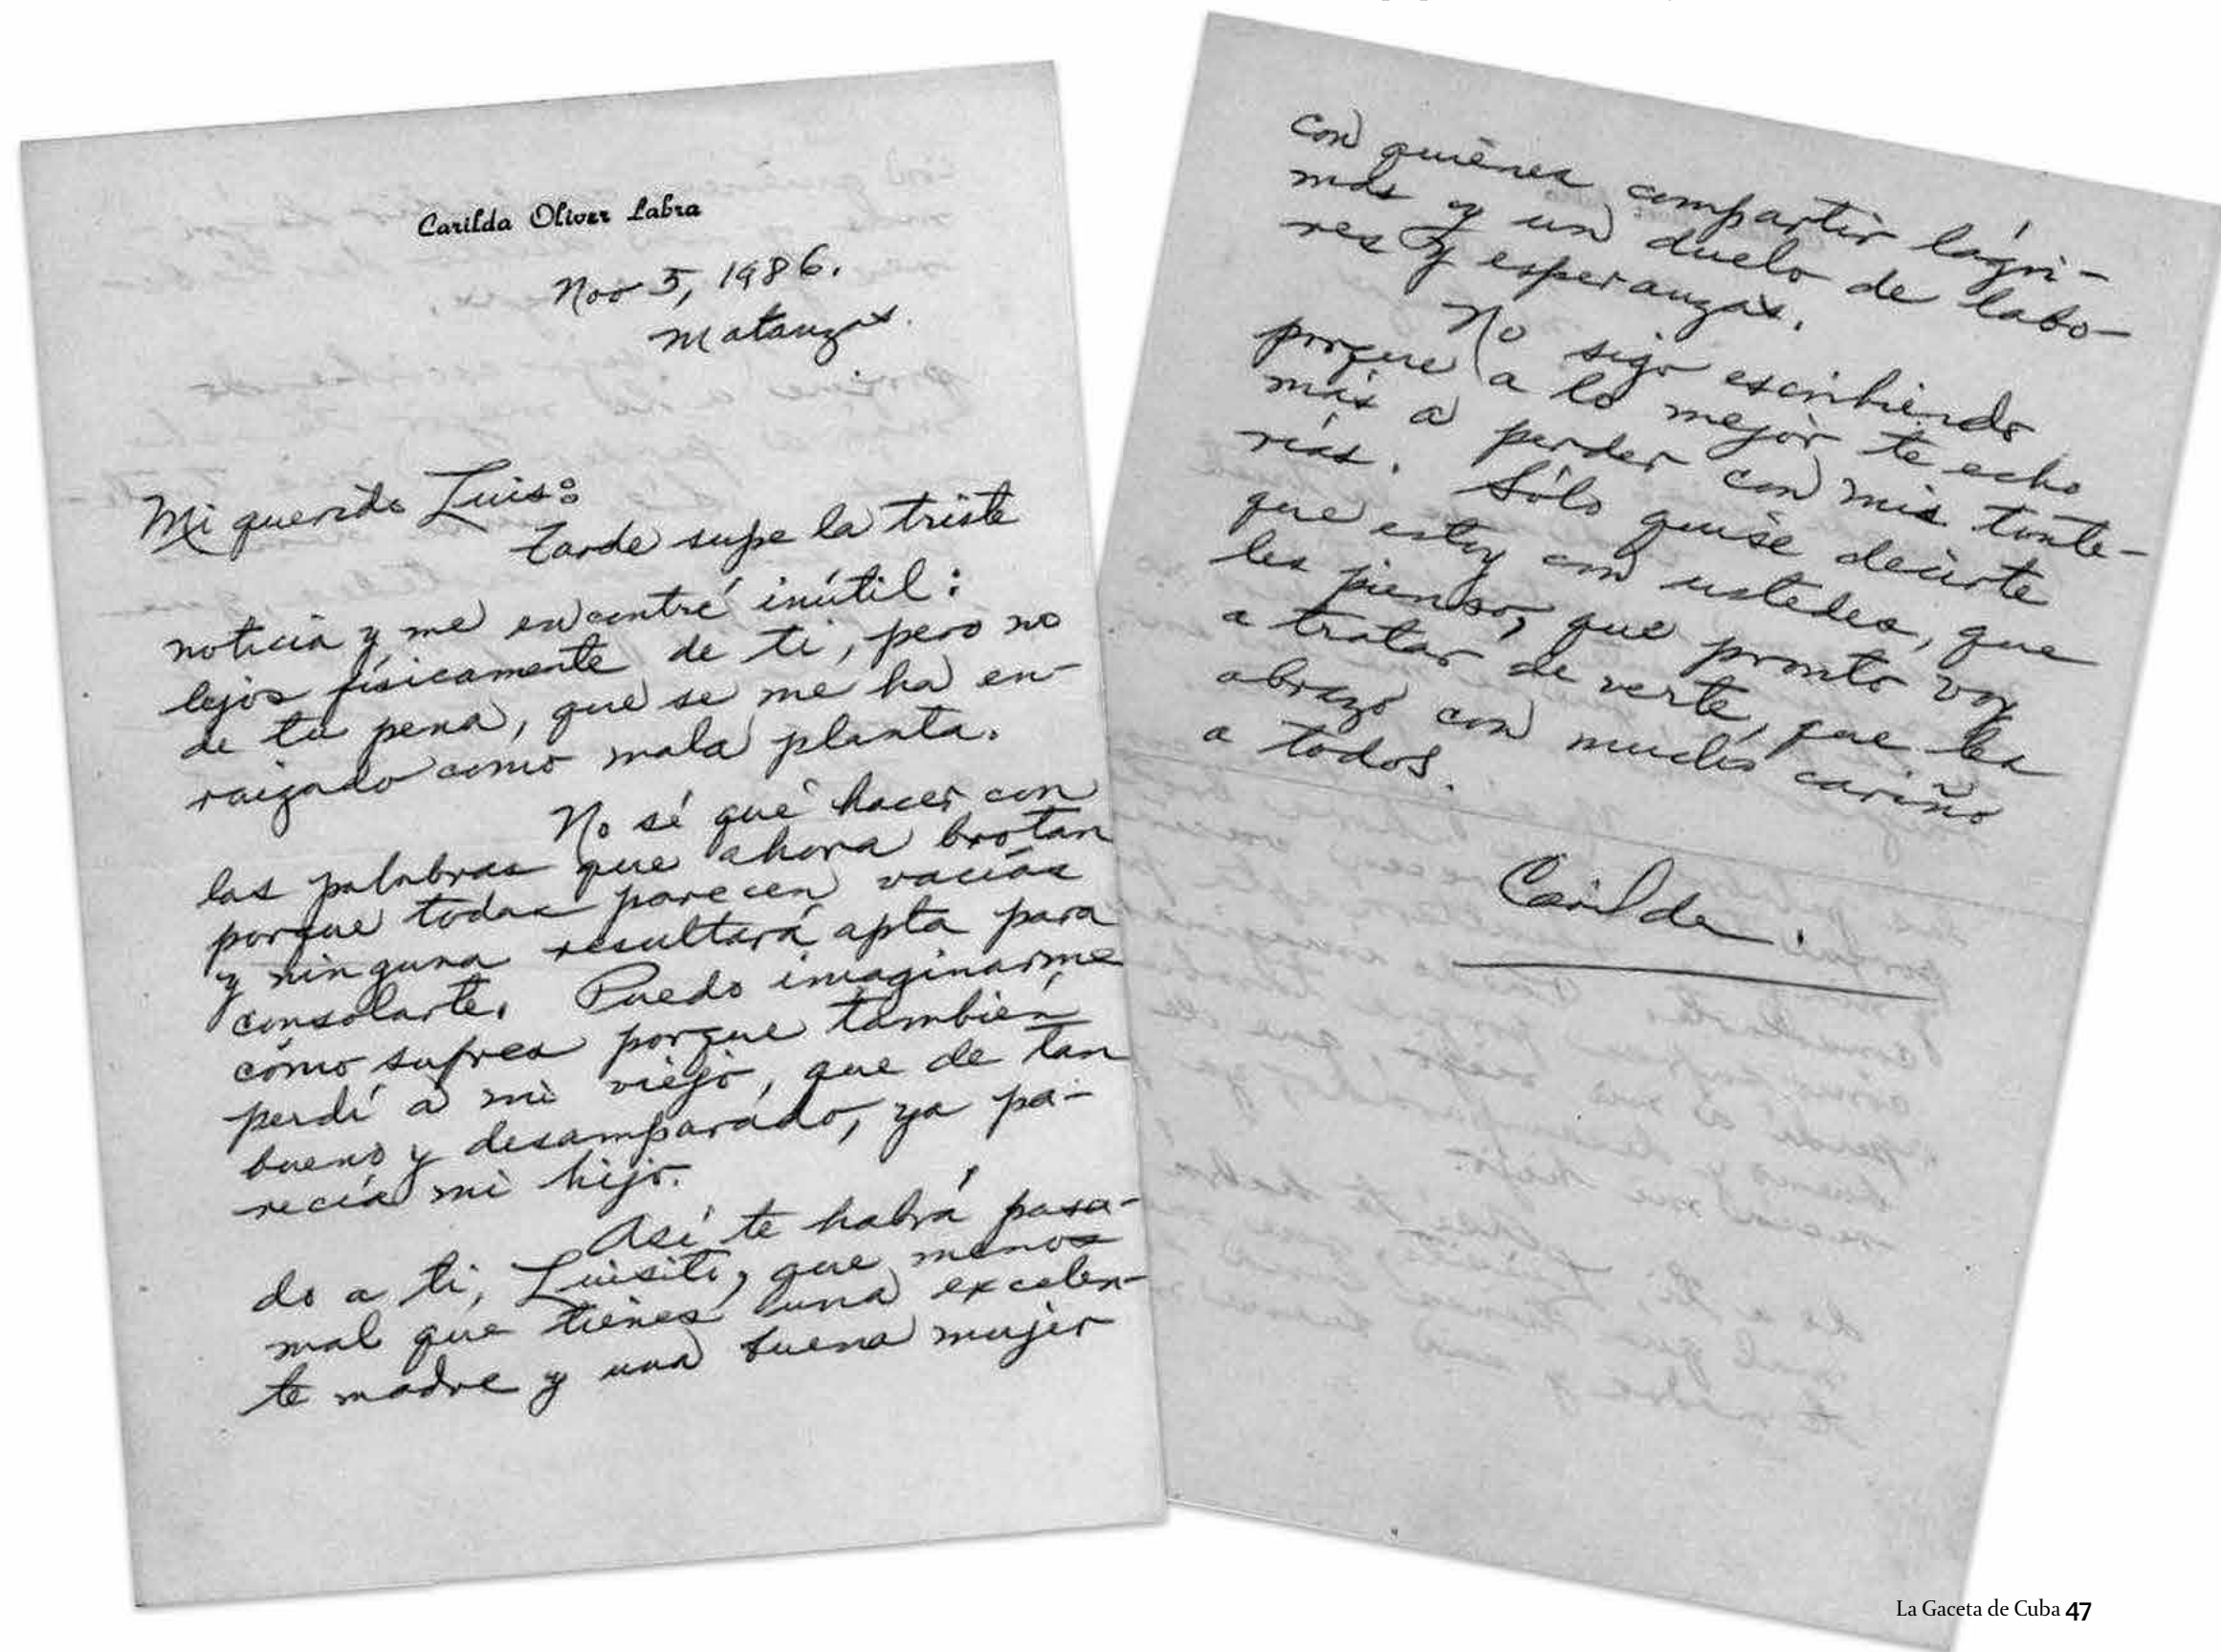 Carilda Oliver Labra
Nov 5, 1986.
Matanzas.
Mi querido Luis:
Tarde supe la triste
noticia y me encontré inútil:
lejos físicamente de ti, pero no
de tu pena, que se me ha en-
raizado como mala planta.
No sé qué hacer con
las palabras que ahora brotan
porque todas parecen vacías
y ninguna resultará apta para
consolarte. Puedo imaginarme
cómo sufres porque también
perdí a mi viejo, que de tan
bueno y desamparado, ya pa-
recía mi hijo.
Así te habrá pasa-
do a ti, Luisito, que menos
mal que tienes una excelen-
te madre y una buena mujer
con quiénes compartir lágri-
mas y un duelo de labo-
res y esperanzas.
No sigo escribiendo
porque a lo mejor te echo
más a perder con mis tonte-
rías. Sólo quise decirte
que estoy con ustedes, que
les pienso, que pronto voy
a tratar de verte, que les
abrazo con mucho cariño
a todos.
Carilda.
La Gaceta de Cuba 47